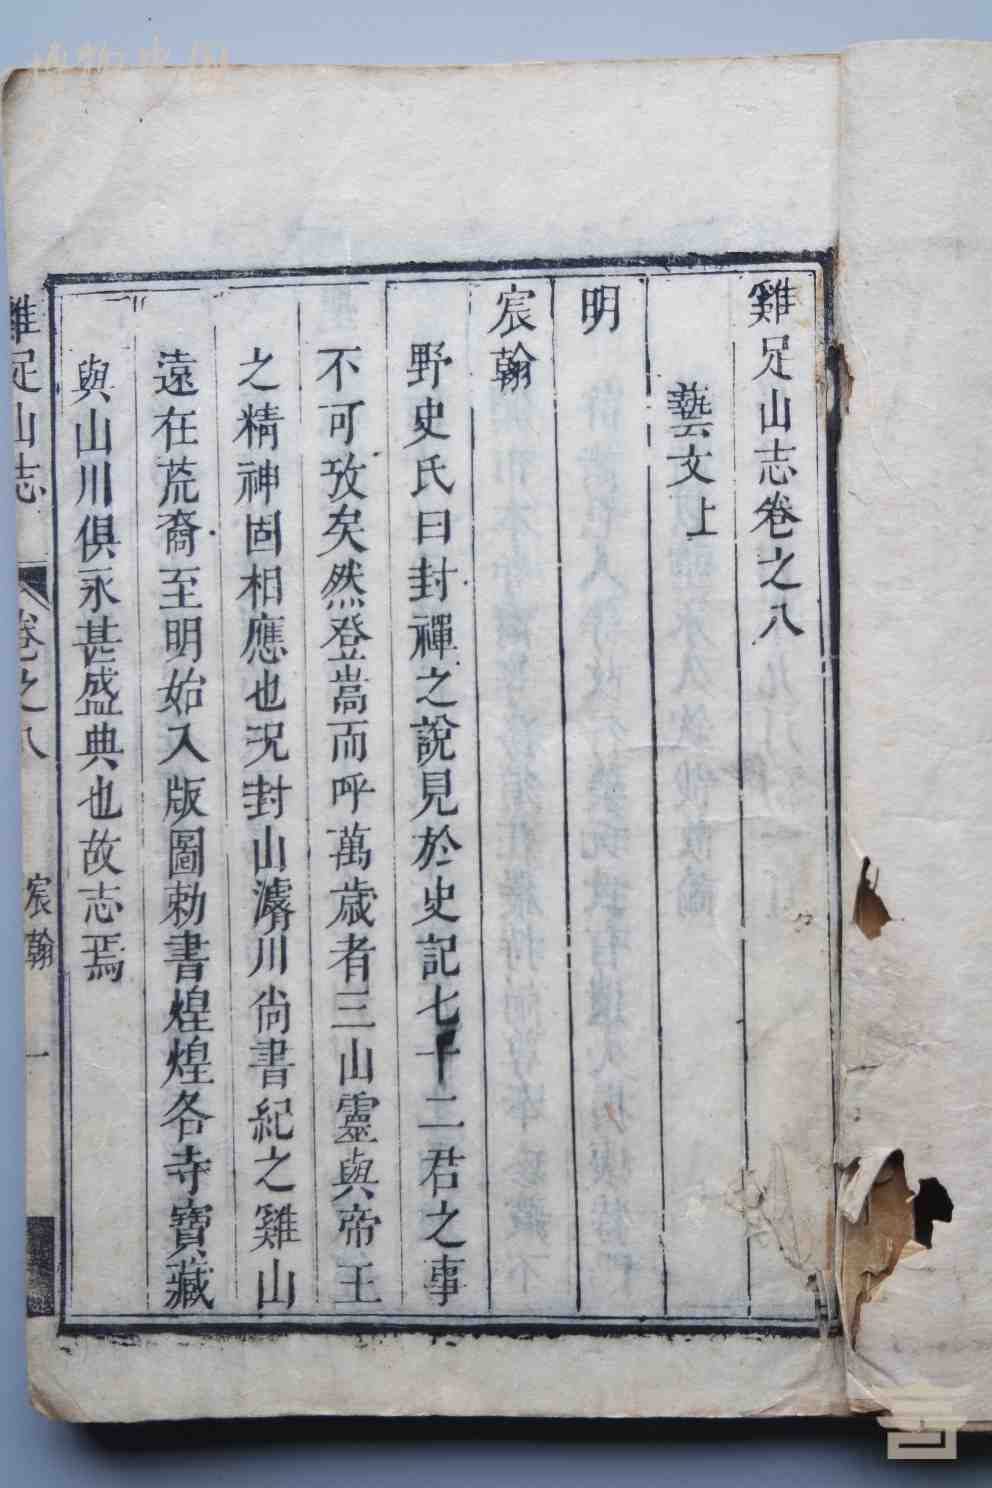 雞足山志卷之八
藝文上
明
宸翰
野史氏曰封禪之說見於史記七十二君之事
不可攷矣然登嵩而呼萬歲者三山靈與帝王
之精神固相應也況封山濬川尚書紀之雞山
遠在荒裔至明始入版圖勅書煌煌各寺寶藏
與山川俱永甚盛典也故志焉
雞足山志
卷之八
宸翰
一